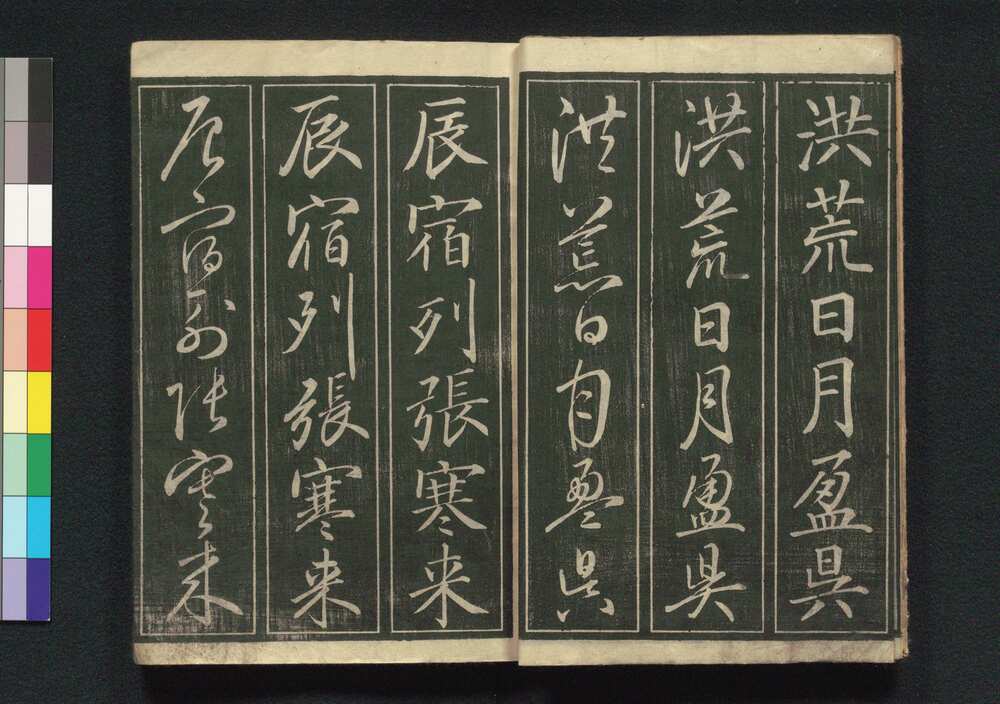 洪荒日月盈昃
洪荒日月盈昃
洪荒日月盈昃
辰宿列張寒来
辰宿列張寒来
辰宿列張寒来